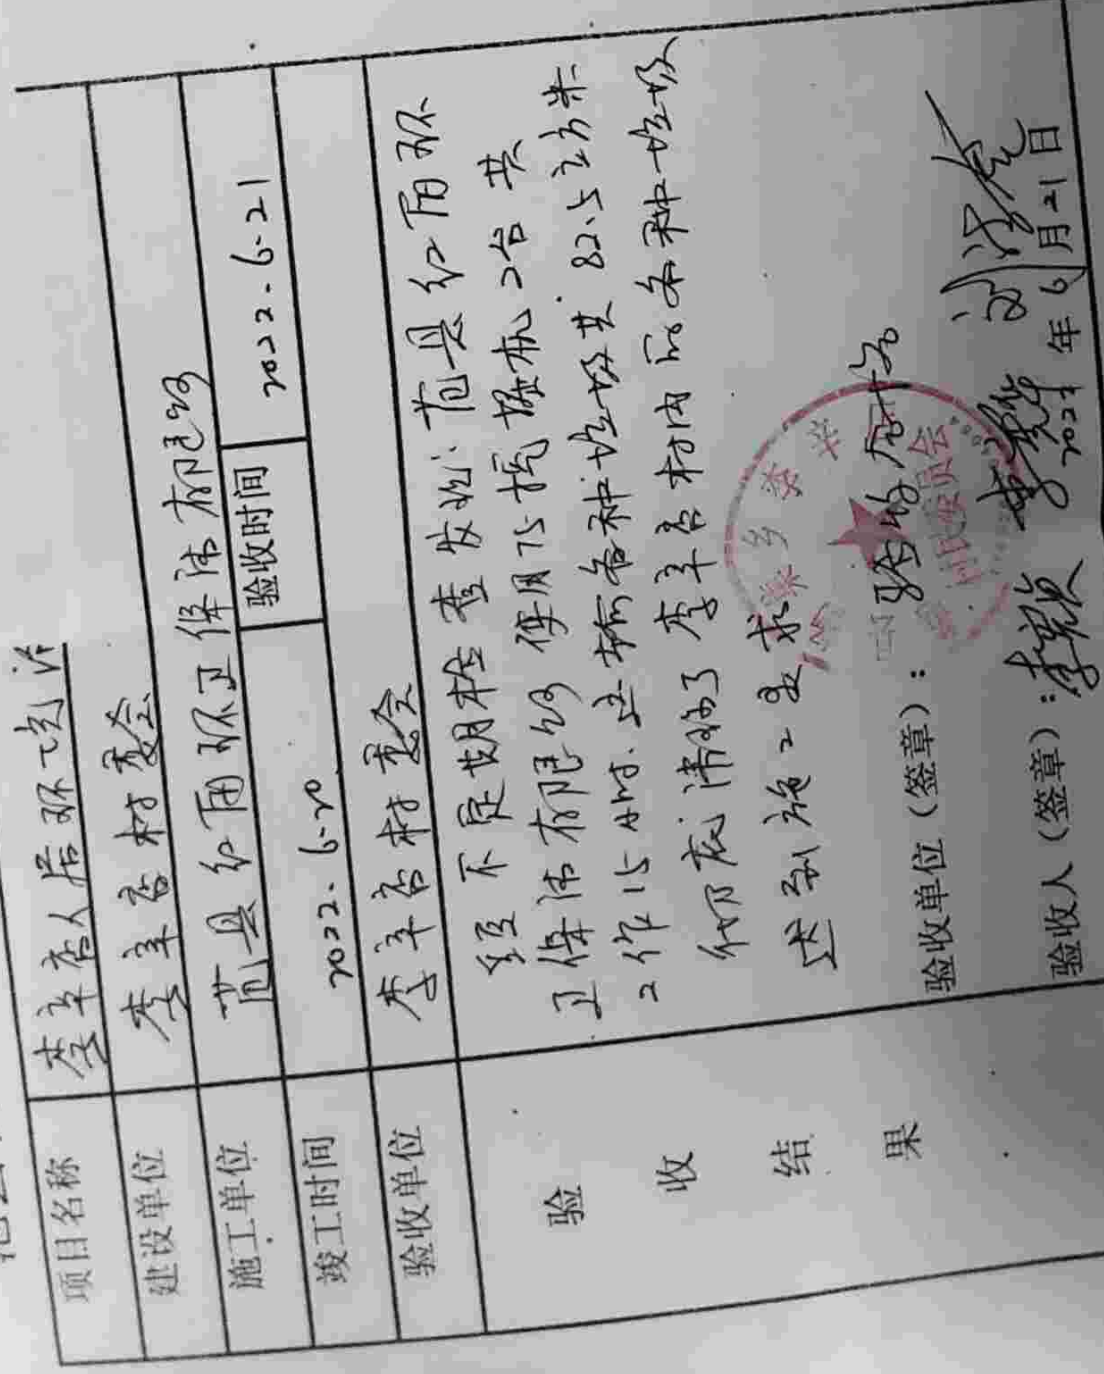 项目名称 李辛店人居环境治
建设单位 李辛店村委会
施工单位 范县红周环卫保洁有限公司
竣工时间 2022.6.20 验收时间 2022.6.21
验收单位 李辛店村委会
验收结果
经不定期检查发现:范县红周环
卫保洁有限公司使用75挖掘机2台共
工作15小时.运输各种垃圾共82.5立方米
彻底清理了李辛店村内的各种垃圾
达到施工要求
验收单位(签章):验收合格
验收人(签章):
2022年6月21日
村民委员会